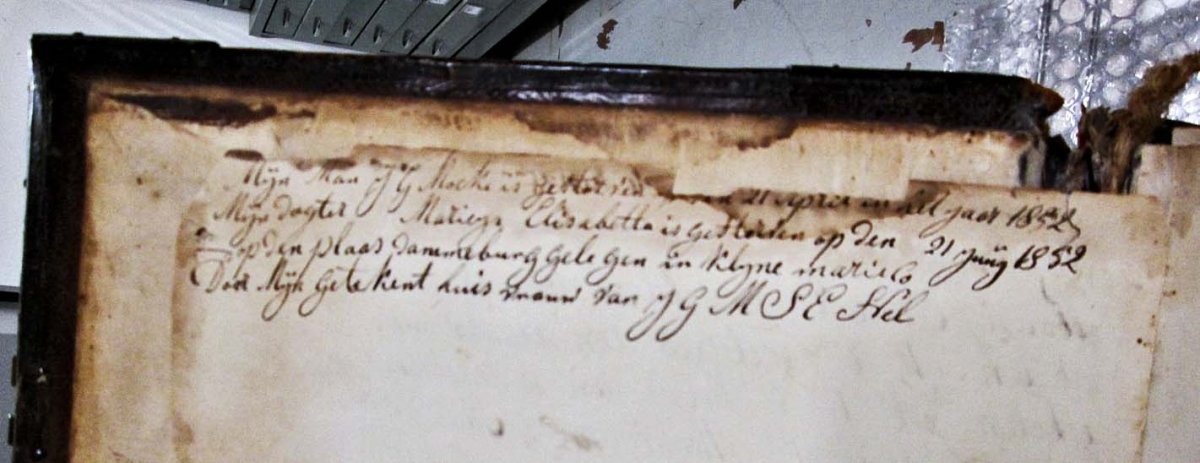 Mijn Man J G Mocke is gestorven den 21 april in het jaar 1852
Mijn dogter Mariega Elisabetta is gestorben op den 21 Junij 1852
op den plaas dammeburg gele gen in klyne marico
Door Mijn getekent huis vrouw van J G M S E Nel